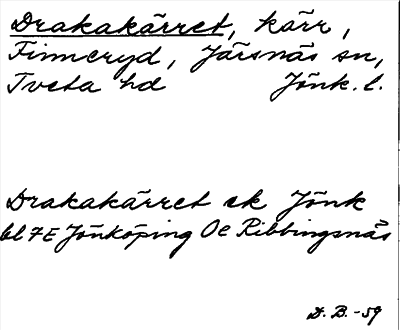 Drakakärret, kärr,
Finneryd, Järsnäs sn,
Tveta hd Jönk. l.
Drakakärret ek Jönk
bl 7E Jönköping Oe Ribbingsnäs
D. B. -59